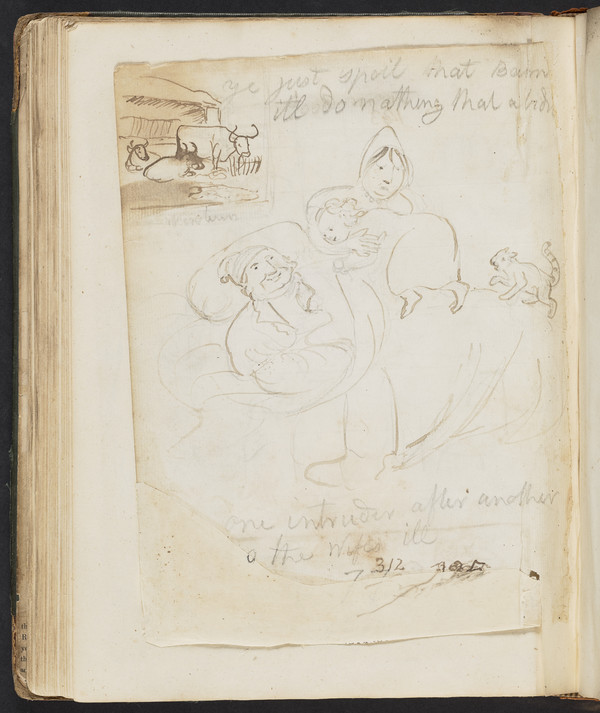 ye just spoil that Bairn
itll do nathing that a bids
one intruder after another
o the Wifes ile
7 312